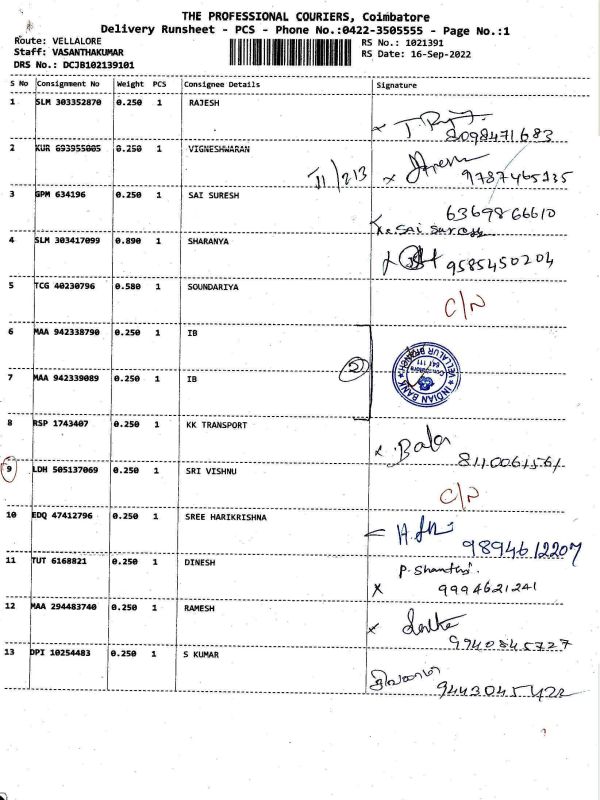 THE PROFESSIONAL COURIERS, Coimbatore
Delivery Runsheet - PCS - Phone No.:0422-3505555 - Page No.:1
Route: VELLALORE RS No.: 1021391
Staff: VASANTHAKUMAR RS Date: 16-Sep-2022
DRS No.: DCJB102139101
S No Consignment No Weight PCS Consignee Details Signature
1 SLM 303352870 0.250 1 RAJESH
8098471683
2 KUR 693955005 0.250 1 VIGNESHWARAN
II/213 x 9787465135
3 GPM 634196 0.250 1 SAI SURESH
6369866610
Sai Suresh
4 SLM 303417099 0.890 1 SHARANYA
9585450204
5 TCG 40230796 0.580 1 SOUNDARIYA
C/N
6 MAA 942338790 0.250 1 IB
2
INDIAN BANK
VELLALUR BRANCH
641 111
7 MAA 942339089 0.250 1 IB
8 RSP 1743407 0.250 1 KK TRANSPORT
x Bala
8110061561
9 LDH 505137069 0.250 1 SRI VISHNU
C/N
10 EDQ 47412796 0.250 1 SREE HARIKRISHNA
9894612207
11 TUT 6168821 0.250 1 DINESH
P. Shanthi
x 9994621241
12 MAA 294483740 0.250 1 RAMESH
x
9940845727
13 DPI 10254483 0.250 1 S KUMAR
9443045422